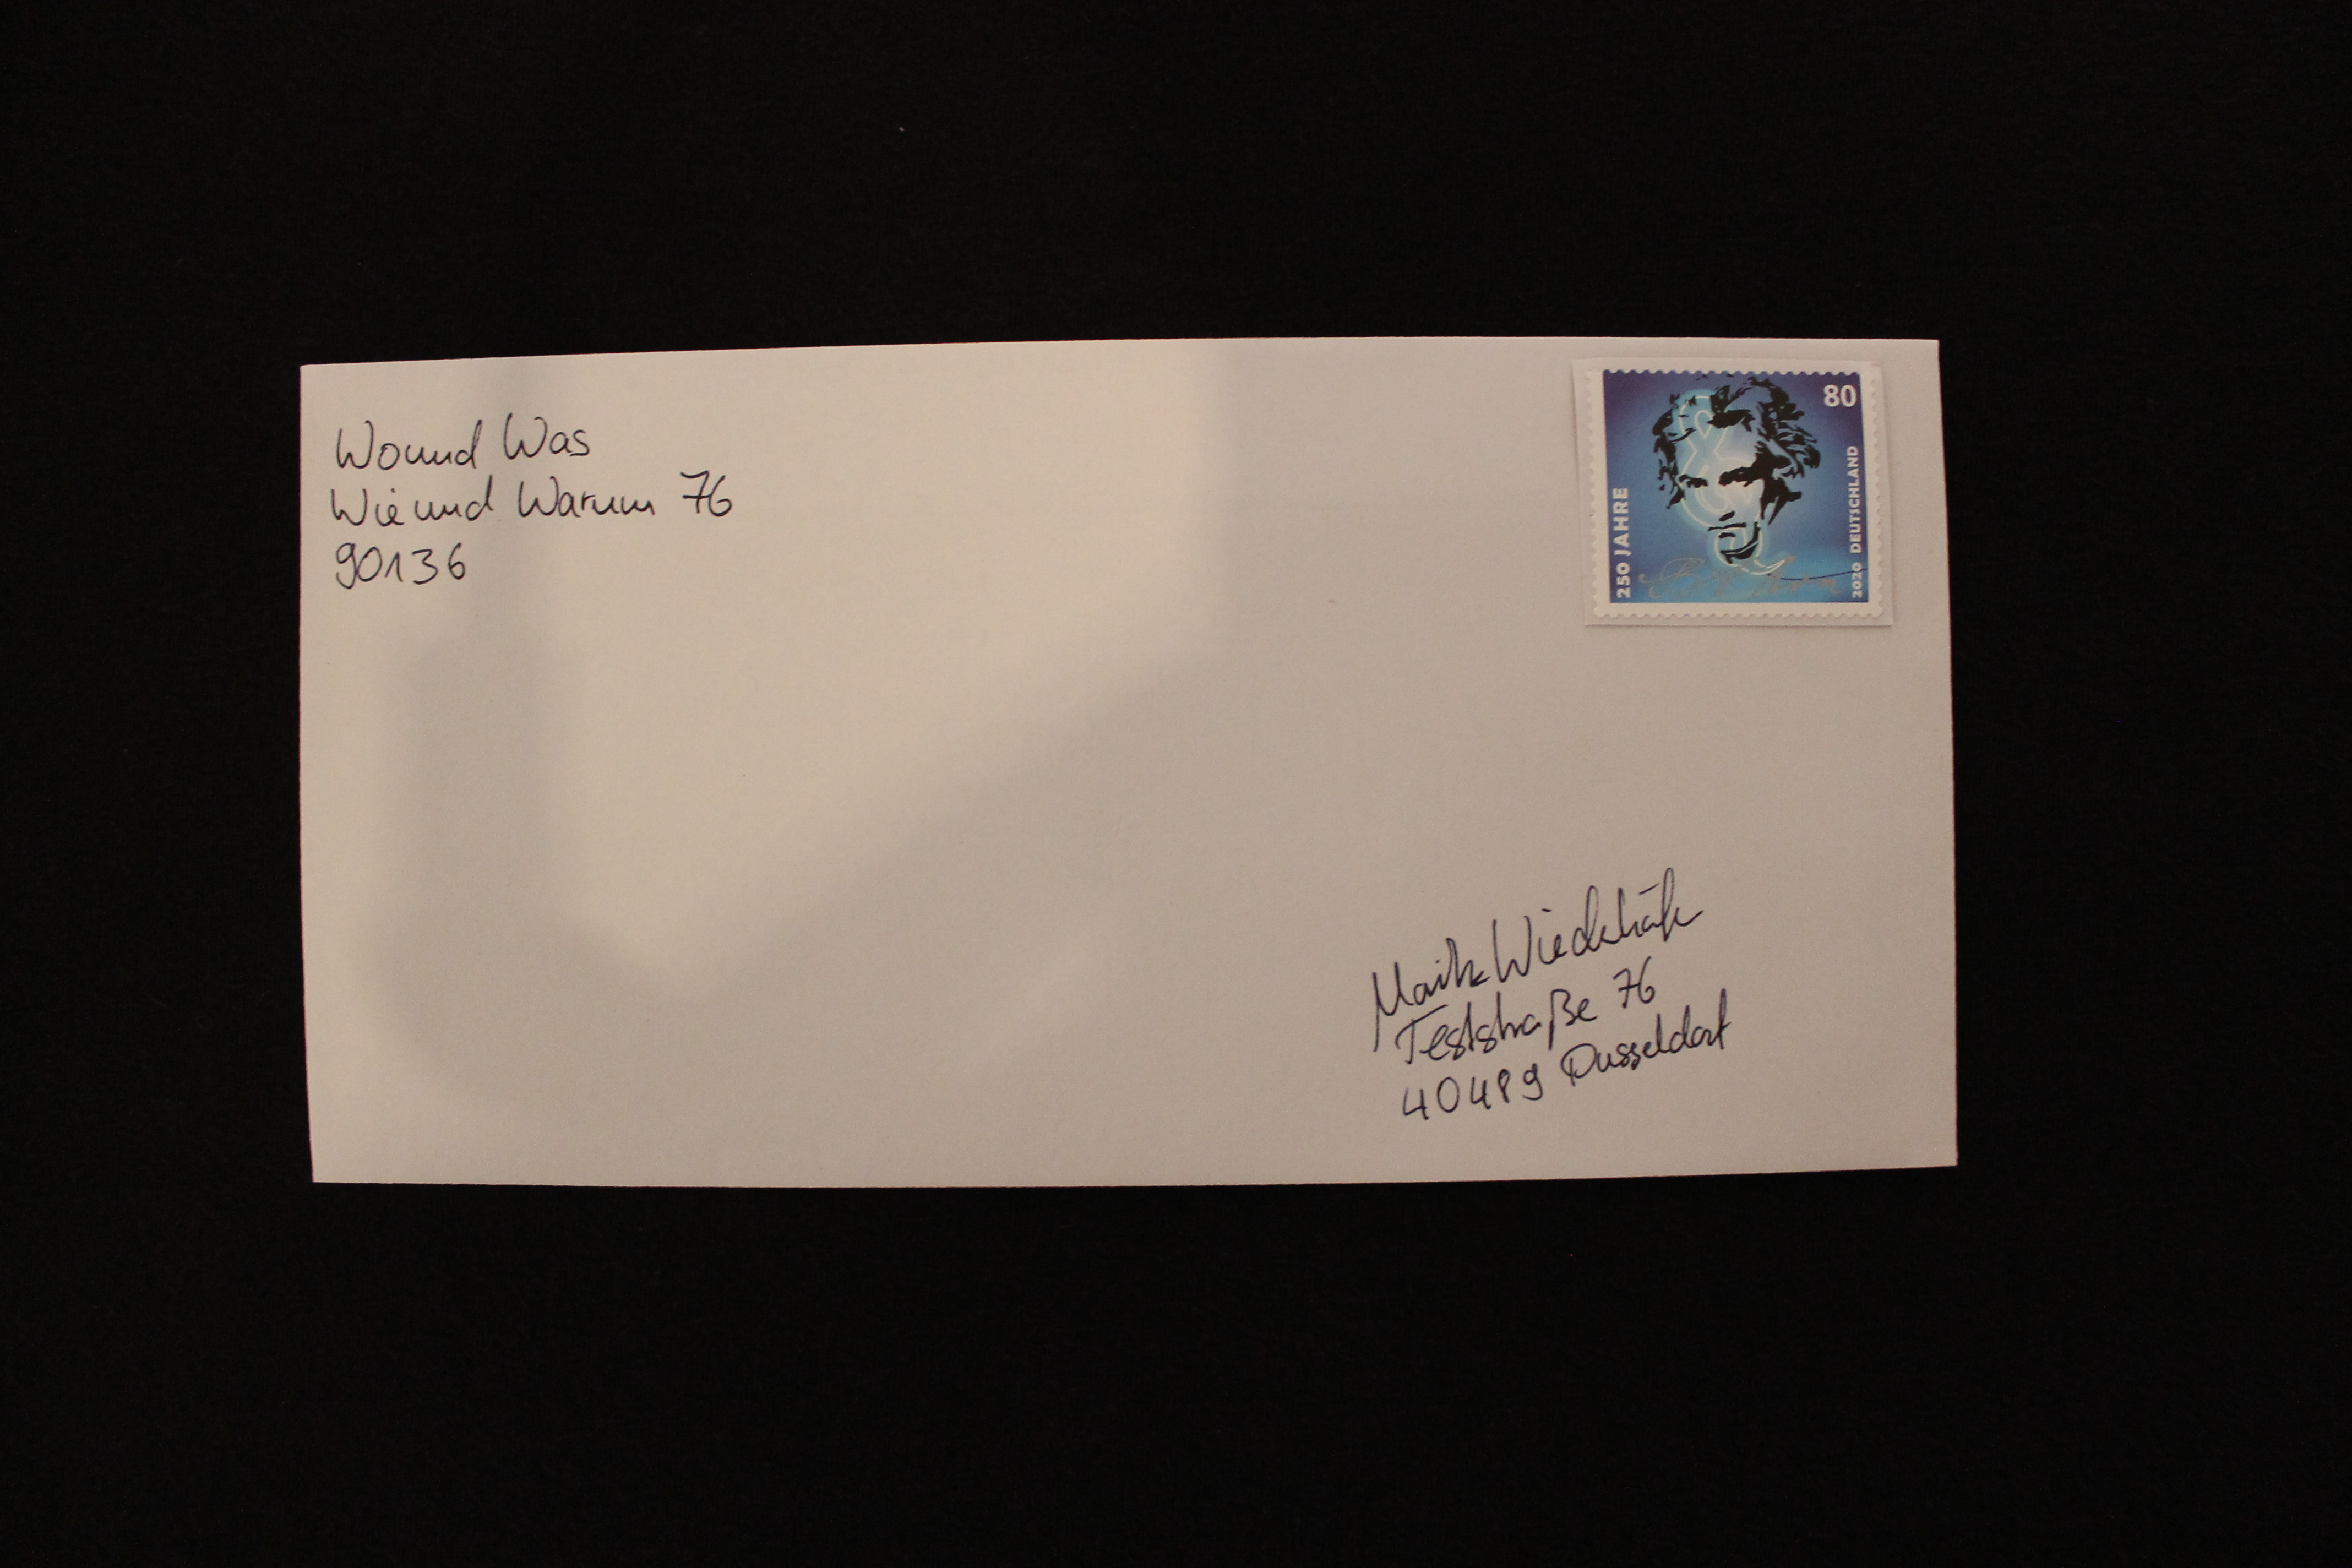 Wound Was
Wieund Warum 76
90136
80
250 JAHRE
2020 DEUTSCHLAND
Maik
Teststraße 76
40489 Dusseldorf